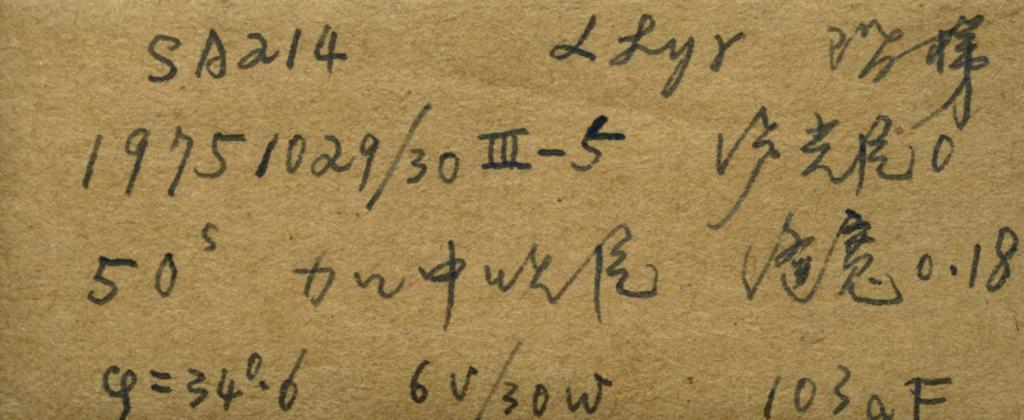 SA214 α Lyr 阶梯
19751029/30 III-5 减光尺0
50ˢ 加中性尺 缝宽0.18
φ=34°.6 6V/30W 103aF